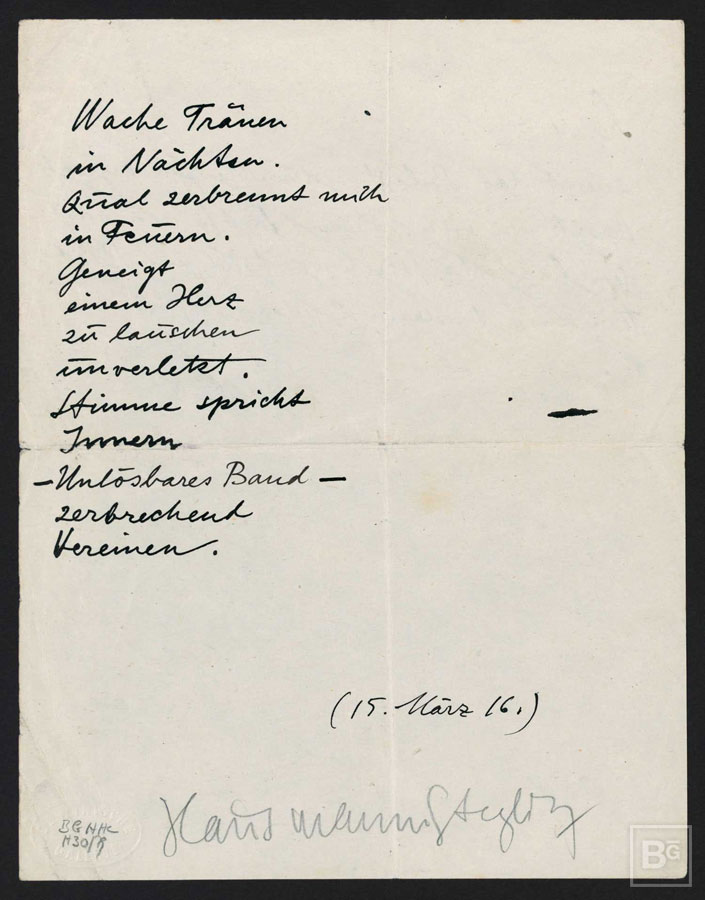 Wache Tränen
in Nächten.
Qual zerbrennt mich
in Feuern.
Geneigt
einem Herz
zu lauschen
unverletzt.
Stimme spricht
Innern
– Unlösbares Band –
zerbrechend
Vereinen.
(15. März 16.)
Hausmann Steglitz
BG HHC
H30/79
BG